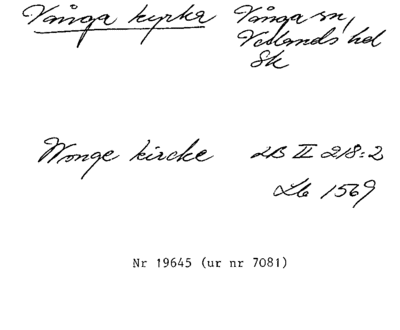 Vånga kyrka Vånga sn,
Villands hd
Sk
Wonge kircke LB II 218:2
Lb 1569
Nr 19645 (ur nr 7081)